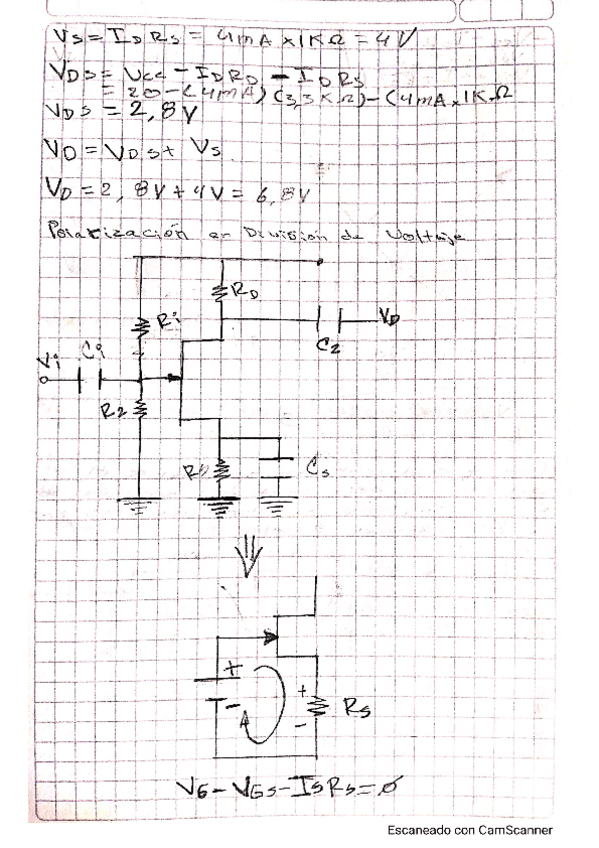 VS = ID RS = 4mA x 1KΩ = 4V
VDS = Vcc - IDRD - IDRS
= 20 - (4mA) (3,3KΩ) - (4mA x 1KΩ
VDS = 2,8V
VD = VDS + VS
VD = 2,8V + 4V = 6,8V
Polarización en División de Voltaje
RD
R1
C2
VD
Vi
Ci
R2
RS
Cs
+
-
+
-
RS
VG - VGS - ISRS = 0
Escaneado con CamScanner